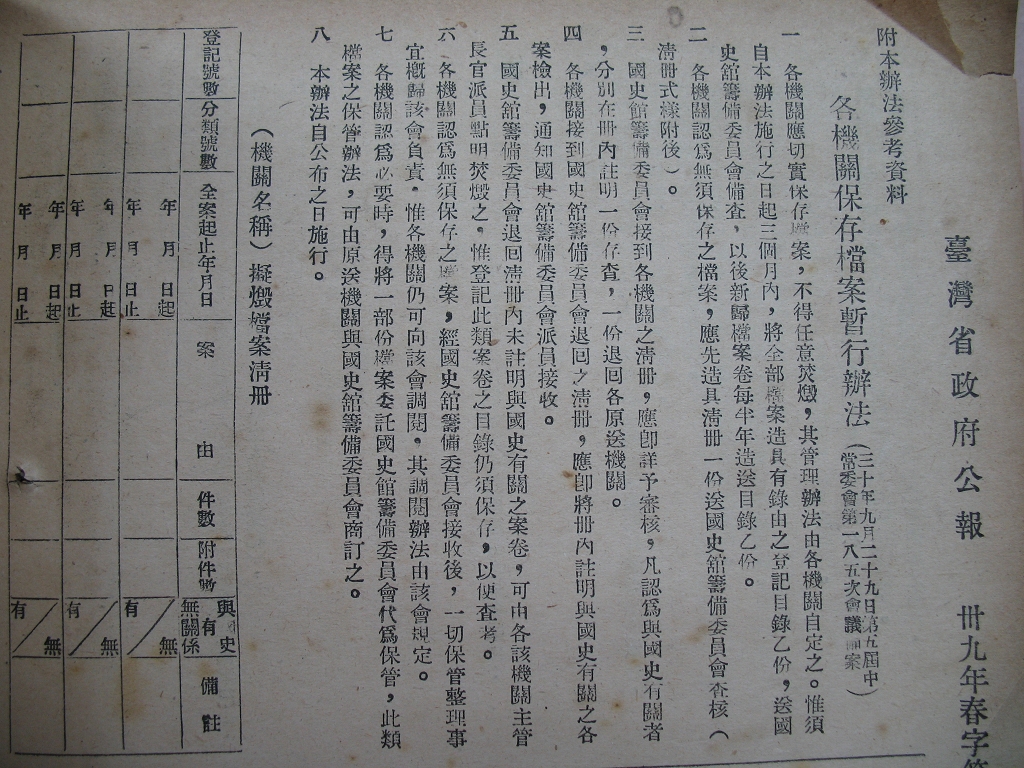 臺灣省政府公報 卅九年春字
附本辦法參考資料
各機關保存檔案暫行辦法(三十年九月二十九日第五屆中
常委會第一八五次會議備案)
一 各機關應切實保存檔案,不得任意焚燬,其管理辦法由各機關自定之。惟須
自本辦法施行之日起三個月內,將全部檔案造具有錄由之登記目錄乙份,送國
史舘籌備委員會備查,以後新歸檔案卷每半年造送目錄乙份。
二 各機關認爲無須保存之檔案,應先造具淸册一份送國史舘籌備委員會查核(
淸册式樣附後)。
三 國史館籌備委員會接到各機關之淸册,應卽詳予審核,凡認爲與國史有關者
,分別在册內註明一份存查,一份退回各原送機關。
四 各機關接到國史舘籌備委員會退回之淸册,應卽將册內註明與國史有關之各
案檢出,通知國史舘籌備委員會派員接收。
五 國史舘籌備委員會退回淸册內未註明與國史有關之案卷,可由各該機關主管
長官派員點明焚燬之。惟登記此類案卷之目錄仍須保存,以便查考。
六 各機關認爲無須保存之檔案,經國史舘籌備委員會接收後,一切保管整理事
宜槪歸該會負責。惟各機關仍可向該會調閱。其調閱辦法由該會規定。
七 各機關認爲必要時,得將一部份檔案委託國史館籌備委員會代爲保管,此類
檔案之保管辦法,可由原送機關與國史舘籌備委員會商訂之。
八 本辦法自公布之日施行。
(機關名稱)擬燬檔案淸册
登記號數 分類號數 全案起止年月日 案由 件數 附件數 與國史有無關係 備註
年 月 日起
年 月 日止
有/無
年 月 日起
年 月 日止
有/無
年 月 日起
年 月 日止
有/無